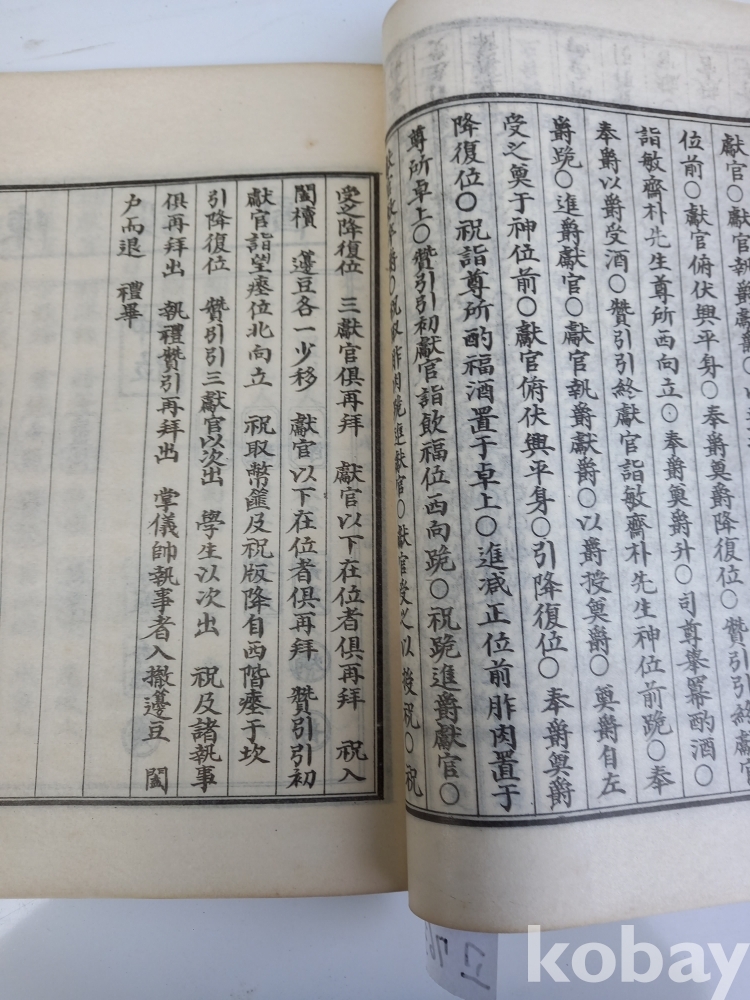 獻官○獻官執爵獻爵○以
位前○獻官俯伏興平身○奉爵奠爵降復位○贊引引終獻官
詣敏齋朴先生尊所西向立○奉爵奠爵升○司尊擧冪酌酒○
奉爵以爵受酒○贊引引終獻官詣敏齋朴先生神位前跪○奉
爵跪○進爵獻官○獻官執爵獻爵○以爵授奠爵○奠爵自左
受之奠于神位前○獻官俯伏興平身○引降復位○奉爵奠爵
降復位○祝詣尊所酌福酒置于卓上○進減正位前胙肉置于
尊所卓上○贊引引初獻官詣飮福位西向跪○祝跪進爵獻官○
○祝取胙肉跪進獻官○獻官受之以授祝○祝
受之降復位 三獻官俱再拜 獻官以下在位者俱再拜 祝入
闔櫝 籩豆各一少移 獻官以下在位者俱再拜 贊引引初
獻官詣望瘞位北向立 祝取幣篚及祝版降自西階瘞于坎
引降復位 贊引引三獻官以次出 學生以次出 祝及諸執事
俱再拜出 執禮贊引再拜出 掌儀帥執事者入撤籩豆 闔
户而退 禮畢
kobay